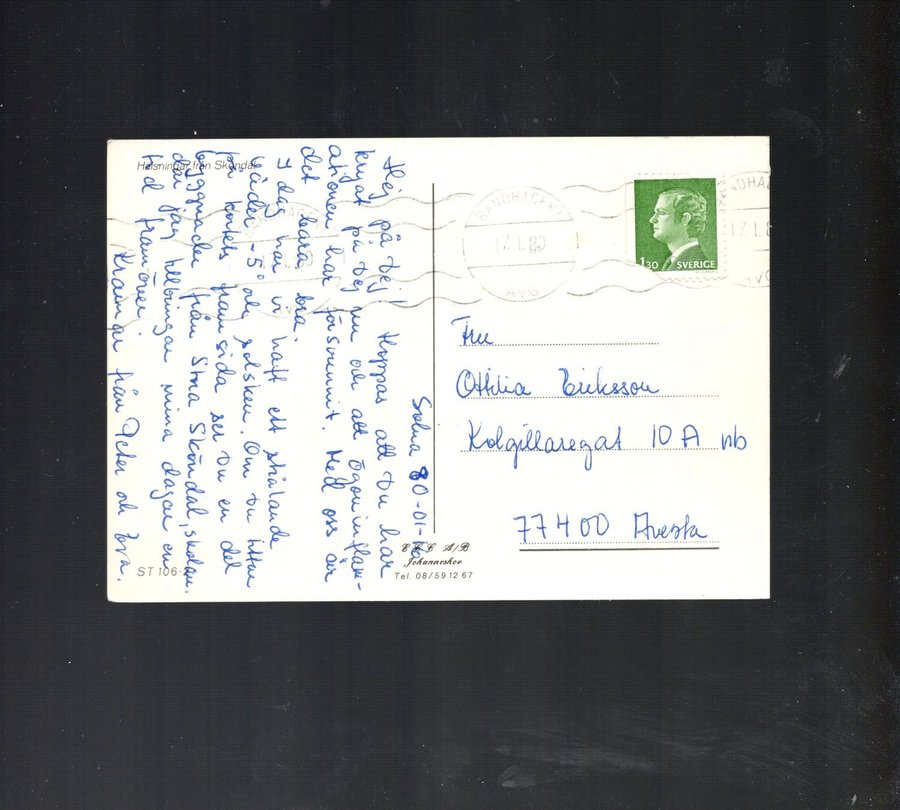 Hälsningar från Sköndal
Solna 80-01-
Hej på Dej! Hoppas att Du har
krynat på Dej nu och att ögoninflam-
ationen har försvunnit. Med oss är
det bara bra.
I dag har vi haft ett strålande
väder -5° och solsken. Om Du tittar
på kortets framsida ser Du en del
byggnader från Stora Sköndal, skolan.
där jag tillbringar mina dagar en
tid framöver.
Kramar från Peter och Eva.
ST 106-2
Johanneshov
Tel. 08/59 12 67
BANDHAGEN 1
17.1.80
AVG
130 SVERIGE
Fru
Ottilia Eriksson
Kolgillaregat 10 A nb
77400 Avesta